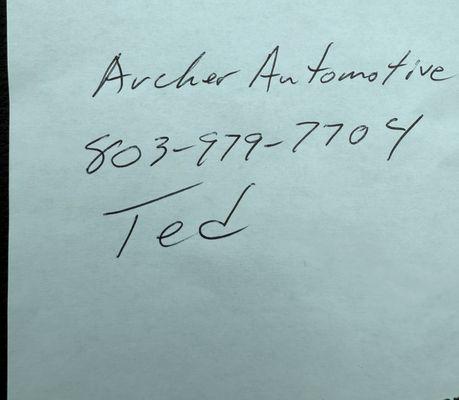 Archer Automotive
803-979-7704
Ted